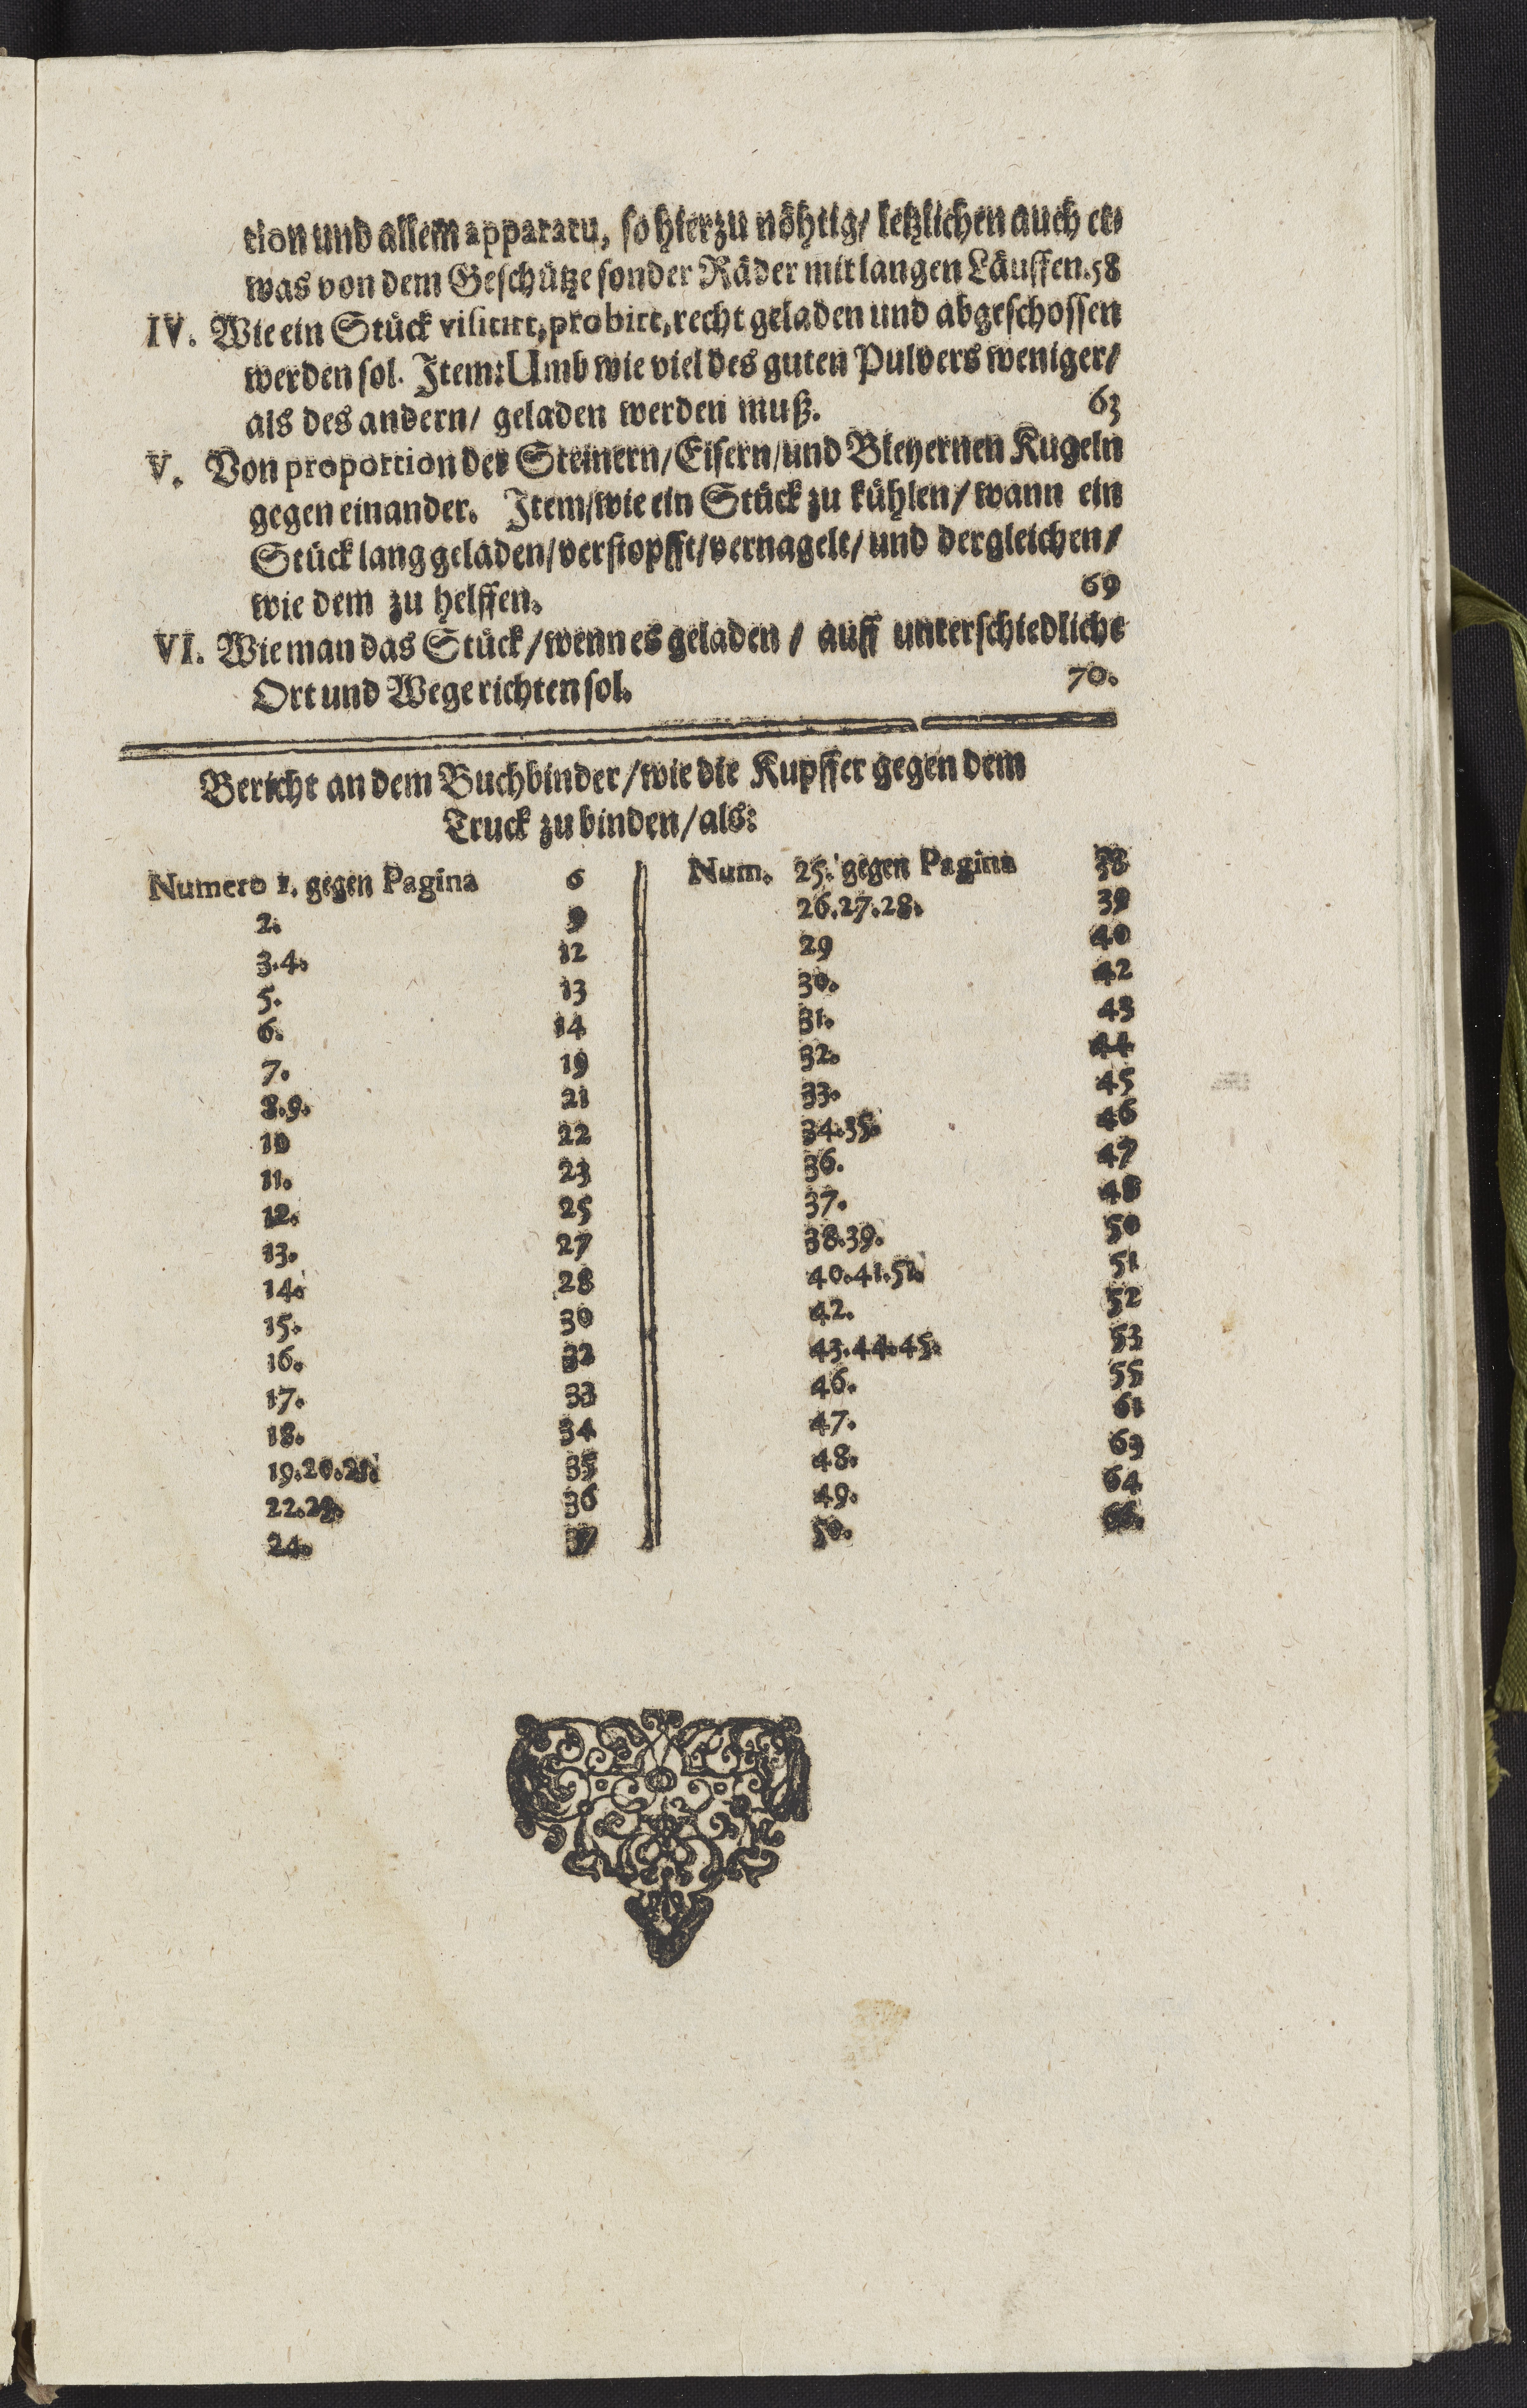 tion und allem apparatu, so hierzu nöhtig/ letzlichen auch et⸗
was von dem Geschütze sonder Räder mit langen Läuffen. 58
IV. Wie ein Stück visitirt, probirt, recht geladen und abgeschossen
werden sol. Item: Umb wie viel des guten Pulvers weniger/
als des andern/ geladen werden muß. 63
V. Von proportion der Steinern/Eisern/und Bleyernen Kugeln
gegen einander. Item/wie ein Stück zu kühlen/wann ein
Stück lang geladen/verstopfft/vernagelt/und dergleichen/
wie dem zu helffen. 69
VI. Wie man das Stück/wenn es geladen / auff unterschiedliche
Ort und Wege richten sol. 70.
Bericht an dem Buchbinder/wie die Kupffer gegen dem
Truck zu binden/als:
Numero 1. gegen Pagina 6
2. 9
3.4. 12
5. 13
6. 14
7. 19
8.9. 21
10 22
11. 23
12. 25
13. 27
14. 28
15. 30
16. 32
17. 33
18. 34
19.20.21. 35
22.23. 36
24. 37
Num. 25. gegen Pagina 38
26.27.28. 39
29 40
30. 42
31. 43
32. 44
33. 45
34.35. 46
36. 47
37. 48
38.39. 50
40.41.51. 51
42. 52
43.44.45. 53
46. 55
47. 61
48. 63
49. 64
50.